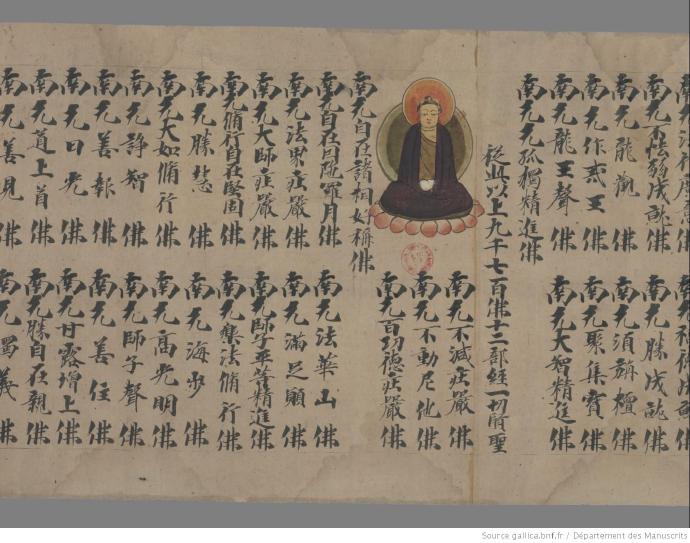 南无 佛 南无勝成就佛
南无龍觀佛 南无須蹄檀佛
南无作戒王佛 南无聚集寳佛
南无龍王聲佛 南无大智精進佛
南无孤獨精進佛
從此以上九千七百佛十二部經一切賢聖
南无不減莊嚴佛
南无不動尼他佛
南无百功德莊嚴佛
南无自在諸相好稱佛
南无自在因陀羅月佛 南无法華山佛
南无法界莊嚴佛 南无滿足願佛
南无大師莊嚴佛 南无師子平等精進佛
南无脩行自在堅固佛 南无樂法脩行佛
南无勝慧佛 南无海步佛
南无大如脩行佛 南无高光明佛
南无靜智佛 南无師子聲佛
南无善報佛 南无善住佛
南无日光佛 南无甘露增上佛
南无道上首佛 南无勝自在親佛
南无善見佛 南无 義佛
Source gallica.bnf.fr / Département des Manuscrits